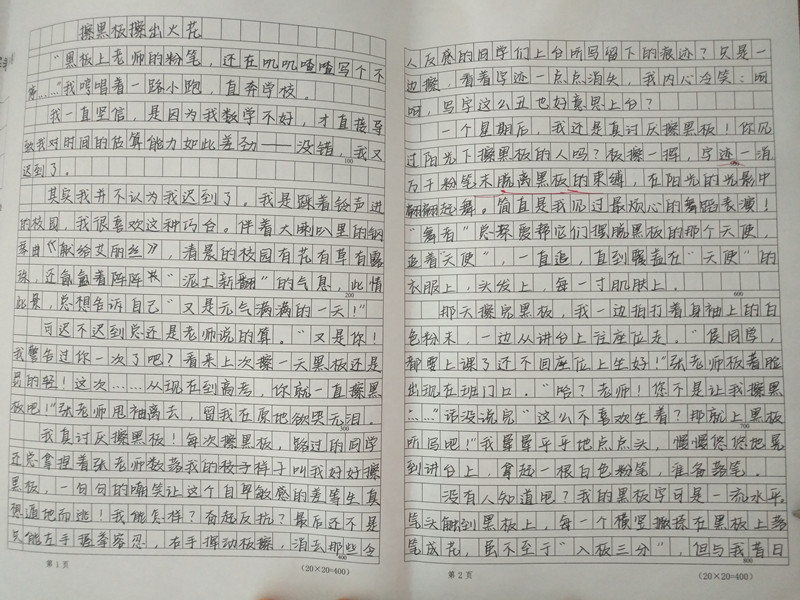 擦黑板擦出火花
“黑板上老师的粉笔，还在叽叽喳喳写个不
……”我哼唱着一路小跑，直奔学校。
我一直坚信，是因为我数学不好，才直接导
致我对时间的估算能力如此差劲——没错，我又
100
迟到了。
其实我并不认为我迟到了。我是踩着铃声进
的校园，我很喜欢这种巧合。伴着大喇叭里的钢
琴曲《献给艾丽丝》，清晨的校园有花有草有露
珠，还氤氲着阵阵“泥土新翻”的气息，此情
200
此景，总想告诉自己“又是元气满满的一天！”
可迟不迟到总还是老师说的算。“又是你！
我警告过你一次了吧？看来上次擦一天黑板还是
罚的轻！这次……从现在到高考，你就一直擦黑
板吧！”张老师甩袖离去，留我在原地欲哭无泪。
300
我真讨厌擦黑板！每次擦黑板，路过的同学
还总拿捏着张老师数落我的样子叫我好好擦
黑板，一句句的嘲笑让这个自卑敏感的差等生真
想遁地而逃！我能怎样？奋起反抗？最后还不是
只能左手握拳容忍，右手挥动板擦，消去那些令
400
第 1 页
(20×20=400)
人反感的同学们上台所写留下的痕迹？只是一
边擦，看着字迹一点点消失，我内心冷笑：啊
啊，写字这么丑也好意思上台？
一个星期后，我还是真讨厌擦黑板！你见
过阳光下擦黑板的人吗？板擦一挥，字迹一消
万千粉笔末脱离黑板的束缚，在阳光的光影中
翩翩起舞。简直是我见过最烦心的舞蹈表演！
“舞者”总探爱帮它们摆脱黑板的那个天使，
追着“天使”，一直追，直到覆盖在“天使”的
衣服上，头发上，每一寸肌肤上。
600
那天擦完黑板，我一边拍打着身袖上的白
色粉末，一边从讲台上往座位走。“侯同学，
都要上课了还不回座位上坐好！”张老师板着脸
出现在班门口。“哈？老师！您不是让我擦黑
……”“话没说完“这么不喜欢坐着？那就上黑板
700
所写吧！”我晕晕乎乎地点点头，慢慢悠悠地晃
到讲台上，拿起一根白色粉笔，准备落笔。
没有人知道吧？我的黑板字可是一流水平。
笔头触到黑板上，每一个横竖撇捺在黑板上落
笔成花，虽不至于“入板三分”，但与我昔日
800
第 2 页
(20×20=400)